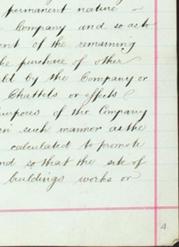 permanent nature
Company and so as to
ent of the remaining
he purchase of other
by the Company or
Chattels or effects
urposes of the Company
in such manner as the
calculated to promote
nd so that the site of
buildings works or